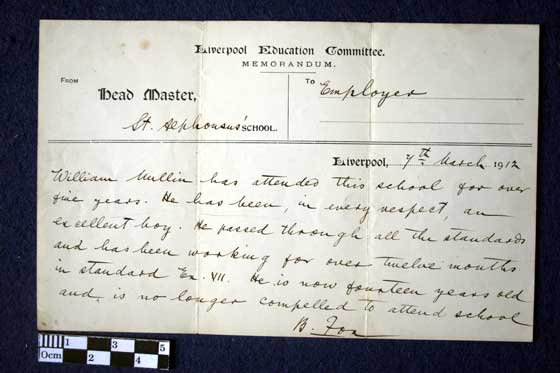 Liverpool Education Committee.
MEMORANDUM.
FROM
Head Master,
St. Alphonsus' SCHOOL.
TO
Employer
Liverpool, 7th March 1912
William Mullin has attended this school for over
five years. He has been, in every respect, an
excellent boy. He passed through all the standards
and has been working for over twelve months
in standard Ex. VII. He is now fourteen years old
and, is no longer compelled to attend school
B. Fox
0cm 1 2 3 4 5